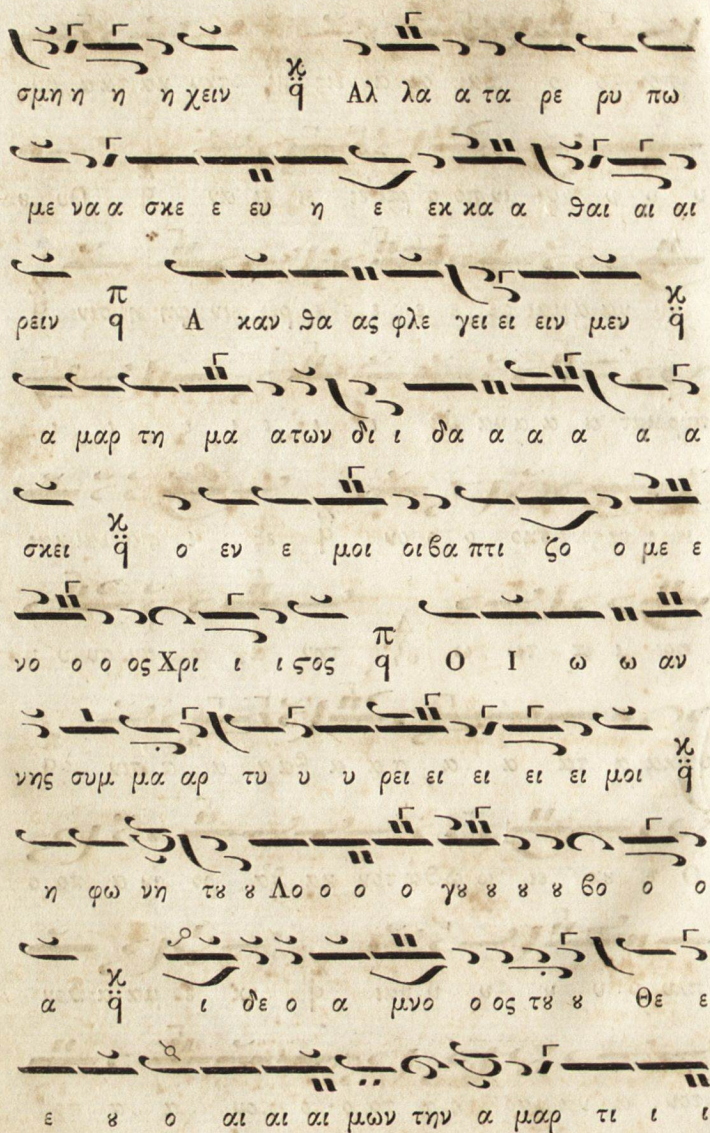 σμη η η η χειν ϗ q̈ Αλ λα α τα ρε ρυ πω
με να α σκε ε ευ η ε εκ κα α ϑαι αι αι
ρειν π q̈ Α καν ϑα ας φλε γει ει ειν μεν ϗ q̈
α μαρ τη μα α των δι ι δα α α α α α
σκει ϗ q̈ ο εν ε μοι οι βα πτι ζο ο με ε
νο ο ο ος Χρι ι ι ϛος π q̈ Ο Ι ω ω αν
νης συμ μα αρ τυ υ υ ρει ει ει ει ει μοι ϗ q̈
η φω νη τȣ ȣ Λο ο ο ο γȣ ȣ ȣ ȣ βο ο ο
α ϗ q̈ ι δε ο α μνο ο ος τȣ ȣ Θε ε
ε ȣ ο αι αι αι μων την α μαρ τι ι ι